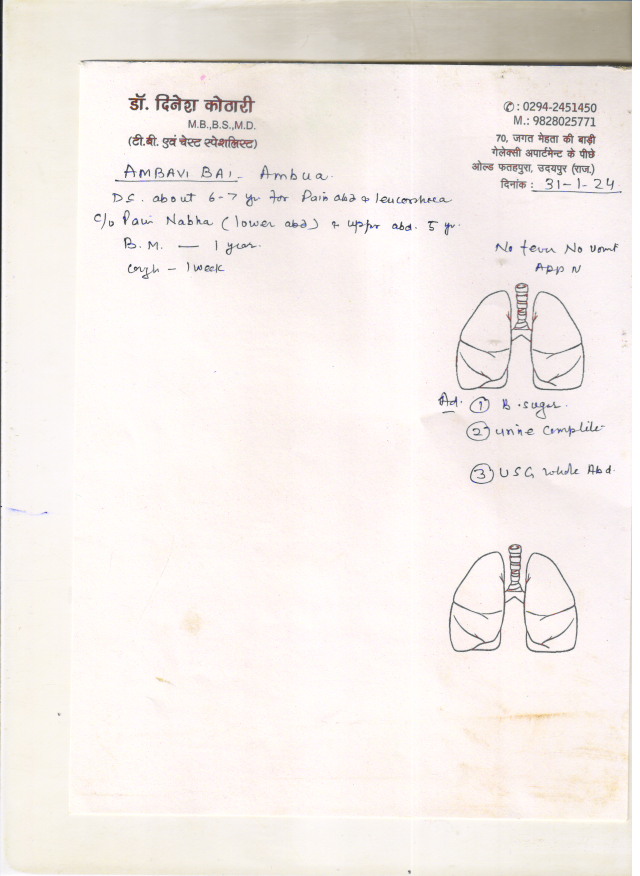 डॉ. दिनेश कोठारी
M.B.,B.S.,M.D.
(टी.बी. एवं चेस्ट स्पेशलिस्ट)
✆: 0294-2451450
M.: 9828025771
70, जगत मेहता की बाड़ी
गेलेक्सी अपार्टमेन्ट के पीछे
ओल्ड फतहपुरा, उदयपुर (राज.)
दिनांक : 31-1-24
AMBAVI BAI - Ambua
about 6-7 yr for Pain abd & leucorrhoea
C/o Pain Nabha (lower abd) & upper abd. 5 yr.
B.M. — 1 year.
cough - 1 week
No fever No vomit
App N
Ad. 1 B.sugar.
2 urine complete
3 USG whole Abd.